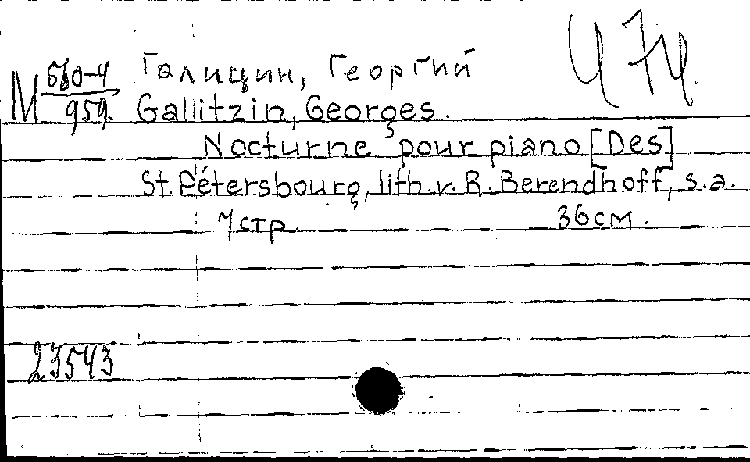 Галицин, Георгий
М 560-4/959.
Gallitzin, Georges.
Nocturne pour piano [Des]
St. Pétersbourg, lith. v. R. Berendhoff, s.a.
7 стр. 36 см.
23543